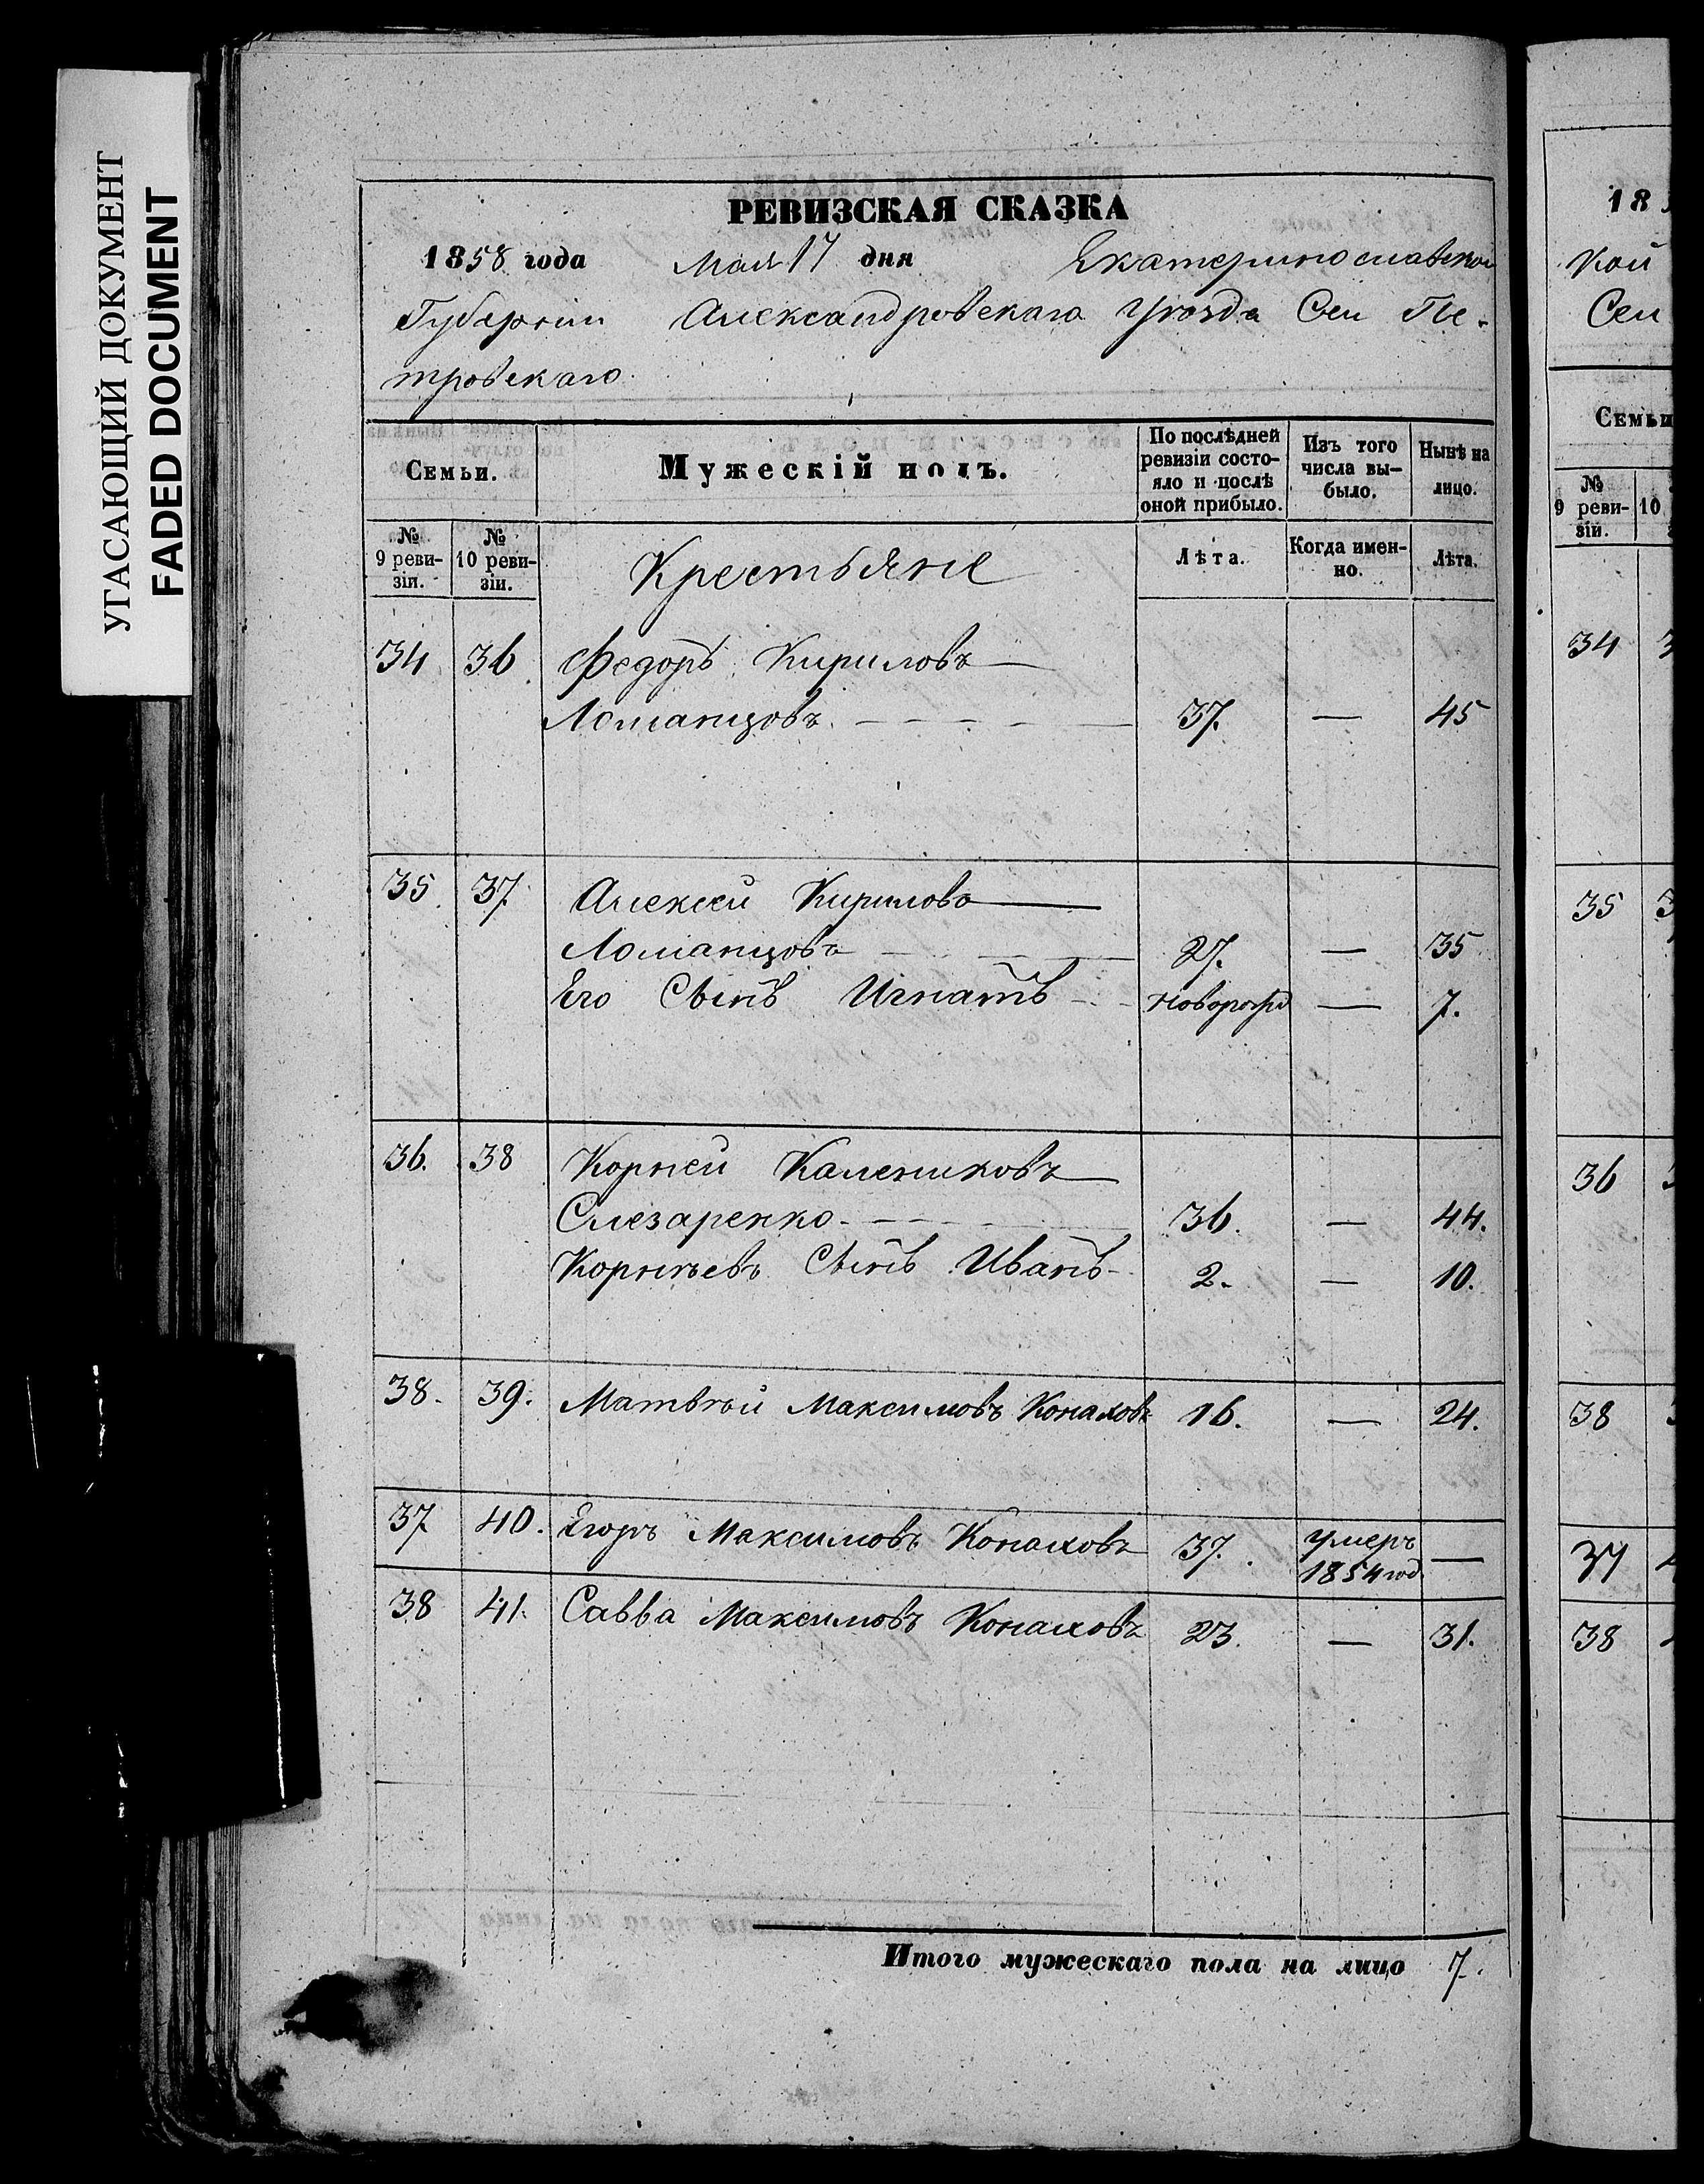 УГАСАЮЩИЙ ДОКУМЕНТ
FADED DOCUMENT
РЕВИЗСКАЯ СКАЗКА
1858 года Мая 17 дня Екатеринославской
Губернiи Александровскаго Уѣзда Сел Пе-
тровскаго
Семьи. Мужескiй полъ. По послѣдней ревизiи состо-яло и послѣ оной прибыло. Изъ того числа вы-было. Нынѣ на лицо.
№ 9 реви-зiи. № 10 реви-зiи. Крестьяне Лѣта. Когда имен-но. Лѣта.
34 36 Федоръ Кириловъ
Ломанцовъ 37. — 45
35 37 Алексей Кириловъ
Ломанцовъ 27. — 35
Его Сынъ Игнатъ новорожд — 7.
36. 38 Корней Калениковъ
Слезаренко 36. — 44.
Корнѣевъ Сынъ Иванъ 2. — 10.
38. 39. Матвѣй Максимовъ Конаховъ 16. — 24.
37 40. Егоръ Максимовъ Конаховъ 37. умеръ 1854 год. —
38 41. Савва Максимовъ Конаховъ 23. — 31.
Итого мужескаго пола на лицо 7.
18
кой
Сел
Семьи
№ 9 реви-зiи. 10
34
35
36
38
37
38